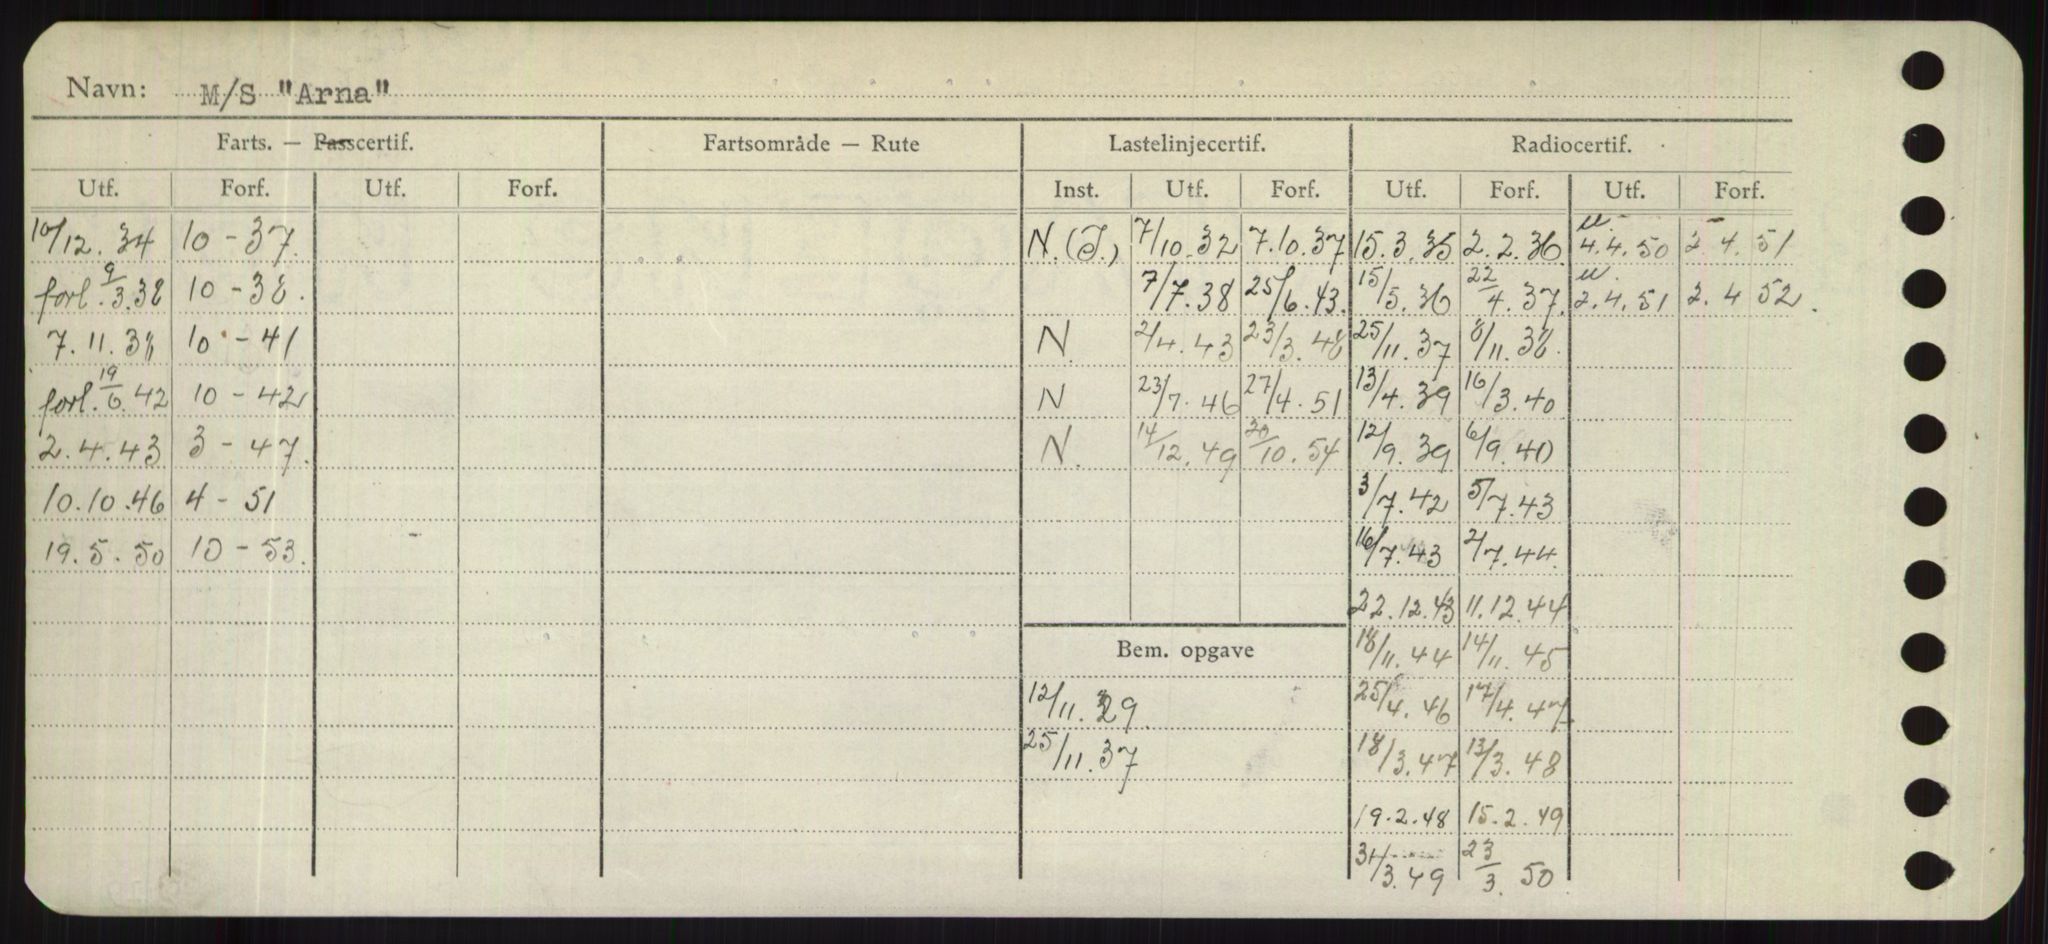 Navn: M/S "Arna"
Farts. — Passcertif. Fartsområde — Rute Lastelinjecertif. Radiocertif.
Utf. Forf. Utf. Forf. Inst. Utf. Forf. Utf. Forf. Utf. Forf.
10/12. 34 10 - 37. N.(I.) 7/10.32 7.10.37 15.3.35 2.2.36. u. 4.4.50 2.4.51
forl. 9/3.38 10 - 38. 7/7.38 25/6.43. 15/5.36 22/4.37. u. 2.4.51 2.4 52.
7.11.38 10 - 41 N. 2/4.43 23/3.48 25/11.37 8/11.38.
forl. 19/6.42 10 - 42 N 23/7.46 27/4.51 13/4.39 16/3.40
2.4.43 3 - 47. N. 14/12.49 20/10.54 12/9.39 6/9.40
10.10.46 4 - 51 3/7.42 5/7.43
19.5.50 10 - 53. 16/7.43 2/7.44.
22.12.43 11.12.44
Bem. opgave 18/11.44 14/11.45
12/11.29 25/4.46 17/4.47.
25/11.37 18/3.47 13/3.48
19.2.48 15.2.49
31/3.49 23/3.50